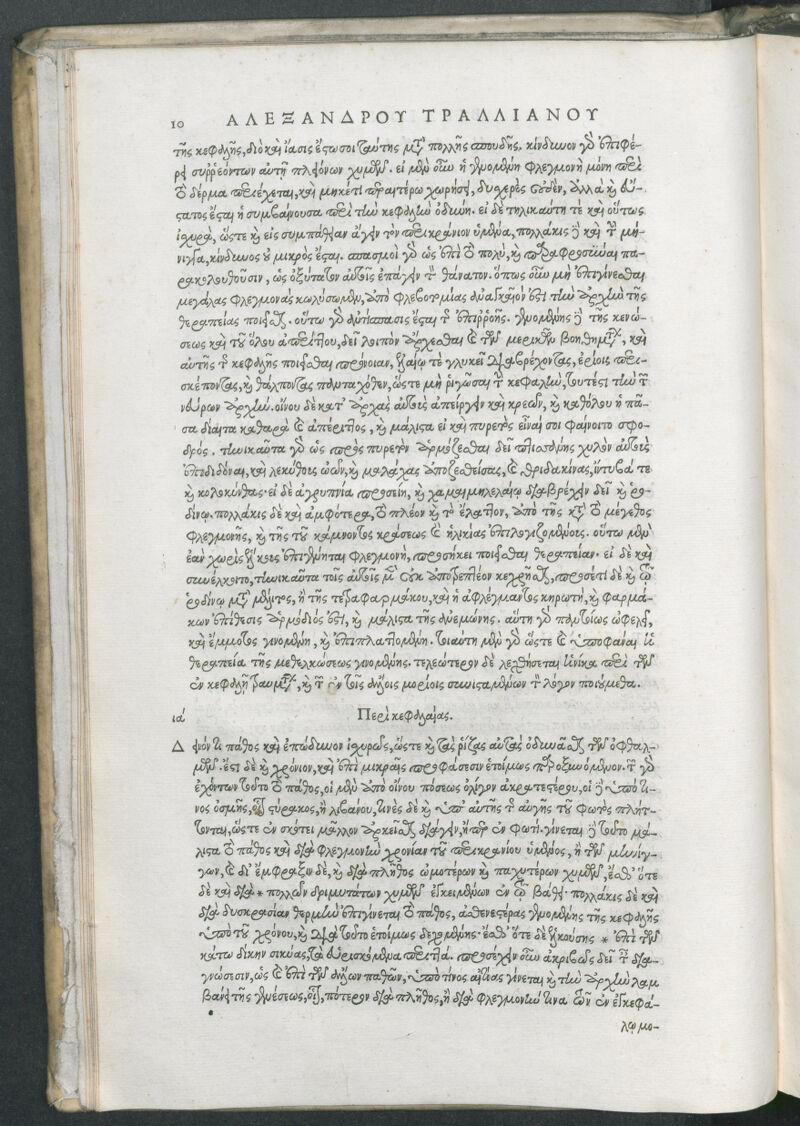 10 ΑΛΕΞΑΝΔΡΟΥ ΤΡΑΛΛΙΑΝΟΥ
τῆς κεφαλῆς, διὸ καὶ ἴασις ἔστω σοι ταύτης μετὰ πολλῆς σπουδῆς. κίνδυνον γὰρ ἐπιφέ-
ρει συρρεόντων αὐτῇ πλειόνων χυμῶν. εἰ μὲν οὖν ἡ γενομένη φλεγμονὴ μόνη περὶ
τὸ δέρμα περιέχεται, καὶ μηκέτι περαιτέρω χωρήσῃ, δυσχερὲς οὐδὲν, ἀλλὰ καὶ εὐ-
ίατος ἔσται ἡ συμβαίνουσα περὶ τὴν κεφαλὴν ὀδύνη. εἰ δὲ τηλικαύτη τὲ καὶ οὕτως
ἰσχυρὰ, ὥστε καὶ εἰς συμπάθειαν ἄγειν τὸν περικράνιον ὑμένα, πολλάκις δὲ καὶ τὴν μή-
νιγγα, κίνδυνος οὐ μικρὸς ἔσται. σπασμοὶ γὰρ ὡς ἐπὶ τὸ πολὺ, καὶ παραφροσύναι πα-
ρακολουθοῦσιν, ὡς ὀξύτατον αὐτοῖς ἐπάγειν τὸν θάνατον. ὅπως οὖν μὴ ἐπιγίνεσθαι
μεγάλας φλεγμονὰς κωλύσωμεν, ἀπὸ φλεβοτομίας ἀναγκαῖόν ἐστι τὴν ἀρχὴν τῆς
θεραπείας ποιεῖσθαι. οὕτω γὰρ ἀντίσπασις ἔσται τῆς ἐπιρροῆς. γενομένης δὲ τῆς κενώ-
σεως καὶ τοῦ ὅλου ἀπερίττου, δεῖ λοιπὸν ἄρχεσθαι καὶ τῶν μερικῶν βοηθημάτων, καὶ
αὐτῆς τῆς κεφαλῆς ποιεῖσθαι πρόνοιαν, ἐλαίῳ τὲ γλυκεῖ διαβρέχοντας, ἐρίοις περι-
σκέποντας, καὶ θάλποντας πανταχόθεν, ὥστε μὴ ῥιγῶσαι τὴν κεφαλὴν, τουτέστι τὴν τῶν
νεύρων ἀρχήν. οἴνου δὲ κατ' ἀρχὰς αὐτοῖς ἀπείργειν καὶ κρεῶν, καὶ καθόλου ἡ πᾶ-
σα δίαιτα καθαρὰ καὶ ἀπέριττος, καὶ μάλιστα εἰ καὶ πυρετὸς εἶναί σοι φαίνοιτο σφο-
δρός. τηνικαῦτα γὰρ ὡς πρὸς πυρετὸν ἁρμόζεσθαι δεῖ πτισάνης χυλὸν αὐτοῖς
ἐπιδιδόναι, καὶ λεκύθοις ὠῶν, καὶ μαλάχας ἀποζεσθείσας, καὶ θριδακίνας, ἴντυβά τε
καὶ κολοκύνθας. εἰ δὲ ἀγρυπνία προσείη, καὶ χαμαιμηλελαίῳ διαβρέχειν δεῖ καὶ ῥο-
δίνῳ. πολλάκις δὲ καὶ ἀμφότερα, τὸ πλέον καὶ τὸ ἔλαττον, ἀπὸ τῆς κατὰ τὸ μέγεθος
φλεγμονῆς, καὶ τῆς τοῦ κάμνοντος κράσεως καὶ ἡλικίας ἐπιλογιζομένοις. οὕτω μὲν
ἐὰν χωρὶς ἕλκους ἐπιγένηται φλεγμονὴ, προσήκει ποιεῖσθαι θεραπείαν. εἰ δὲ καὶ
συνέλκοιτο, τηνικαῦτα τοῖς αὐτοῖς μὲν οὐκ ἀποτρεπτέον κεχρῆσθαι, προσέτι δὲ καὶ τῷ
ῥοδίνῳ μετὰ μέλιτος, ἢ τῆς τετραφαρμάκου, καὶ ἡ ἀφλέγμαντος κηρωτὴ, καὶ φαρμά-
κων ἐπίθεσις ἁρμόδιός ἐστι, καὶ μάλιστα τῆς ἀνεμώνης. αὕτη γὰρ παντοίως ὠφελεῖ,
καὶ ἔμμοτος γινομένη, καὶ ἐπιπλαττομένη. τοιαύτη μὲν γὰρ ὥστε καὶ ὑποφαίναι ἡ
θεραπεία τῆς μεθ' ἑλκώσεως γινομένης. τελεώτερον δὲ λεχθήσεται ἡνίκα περὶ τῶν
ἐν κεφαλῇ τραυμάτων, καὶ τῶν ἐν τοῖς ἄλλοις μορίοις συνισταμένων τὸν λόγον ποιούμεθα.
ιά Περὶ κεφαλαίας.
Δεινόν τι πάθος καὶ ἐπώδυνον ἰσχυρῶς, ὥστε καὶ τὰς ῥίζας αὐτὰς ὀδυνᾶσθαι τῶν ὀφθαλ-
μῶν. ἔστι δὲ καὶ χρόνιον, καὶ ἐπὶ μικραῖς προφάσεσιν ἑτοίμως παροξυνόμενον. τῶν γὰρ
ἐχόντων τοῦτο τὸ πάθος, οἱ μὲν ἀπὸ οἴνου πόσεως ὀλίγον ἀκρατεστέρου, οἱ δὲ ὑπό τι-
νος ὀσμῆς, οἷον στύρακος, ἢ λιβάνου, τινὲς δὲ καὶ ὑπ' αὐτῆς τῆς αὐγῆς τοῦ φωτὸς πλήτ-
τονται, ὥστε ἐν σκότει μᾶλλον ἀρκεῖσθαι διάγειν, ἤπερ ἐν φωτί. γίνεται δὲ τοῦτο μά-
λιστα τὸ πάθος καὶ διὰ φλεγμονὴν χρονίαν τοῦ περικρανίου ὑμένος, ἢ τῶν μηνίγ-
γων, καὶ δι' ἔμφραξιν δὲ, καὶ διὰ πλῆθος ὠμοτέρων καὶ παχυτέρων χυμῶν, ἔσθ' ὅτε
δὲ καὶ διὰ * πολλῶν δριμυτάτων χυμῶν ἐγκειμένων ἐν τῷ βάθει. πολλάκις δὲ καὶ
διὰ δυσκρασίαν θερμὴν ἐπιγίνεται τὸ πάθος, ἀσθενεστέρας γενομένης τῆς κεφαλῆς
ὑπὸ τοῦ χρόνου, καὶ διὰ τοῦτο ἑτοίμως δεχομένης. ἔσθ' ὅτε δὲ ἑλκούσης * ἐπὶ τῶν
κάτω δίκην σικύας, τὰ εὑρισκόμενα περιττά. προσέχειν οὖν ἀκριβῶς δεῖ τῇ δια-
γνώσεσιν, ὡς καὶ ἐπὶ τῶν ἄλλων παθῶν, ὑπό τίνος αἰτίας γίνεται καὶ τὴν ἀρχὴν λαμ
βάνει τῆς γενέσεως, οἷον, πότερον διὰ πλῆθος, ἢ διὰ φλεγμονήν τινα τῶν ἐν ἐγκεφά-
λῳ μο-